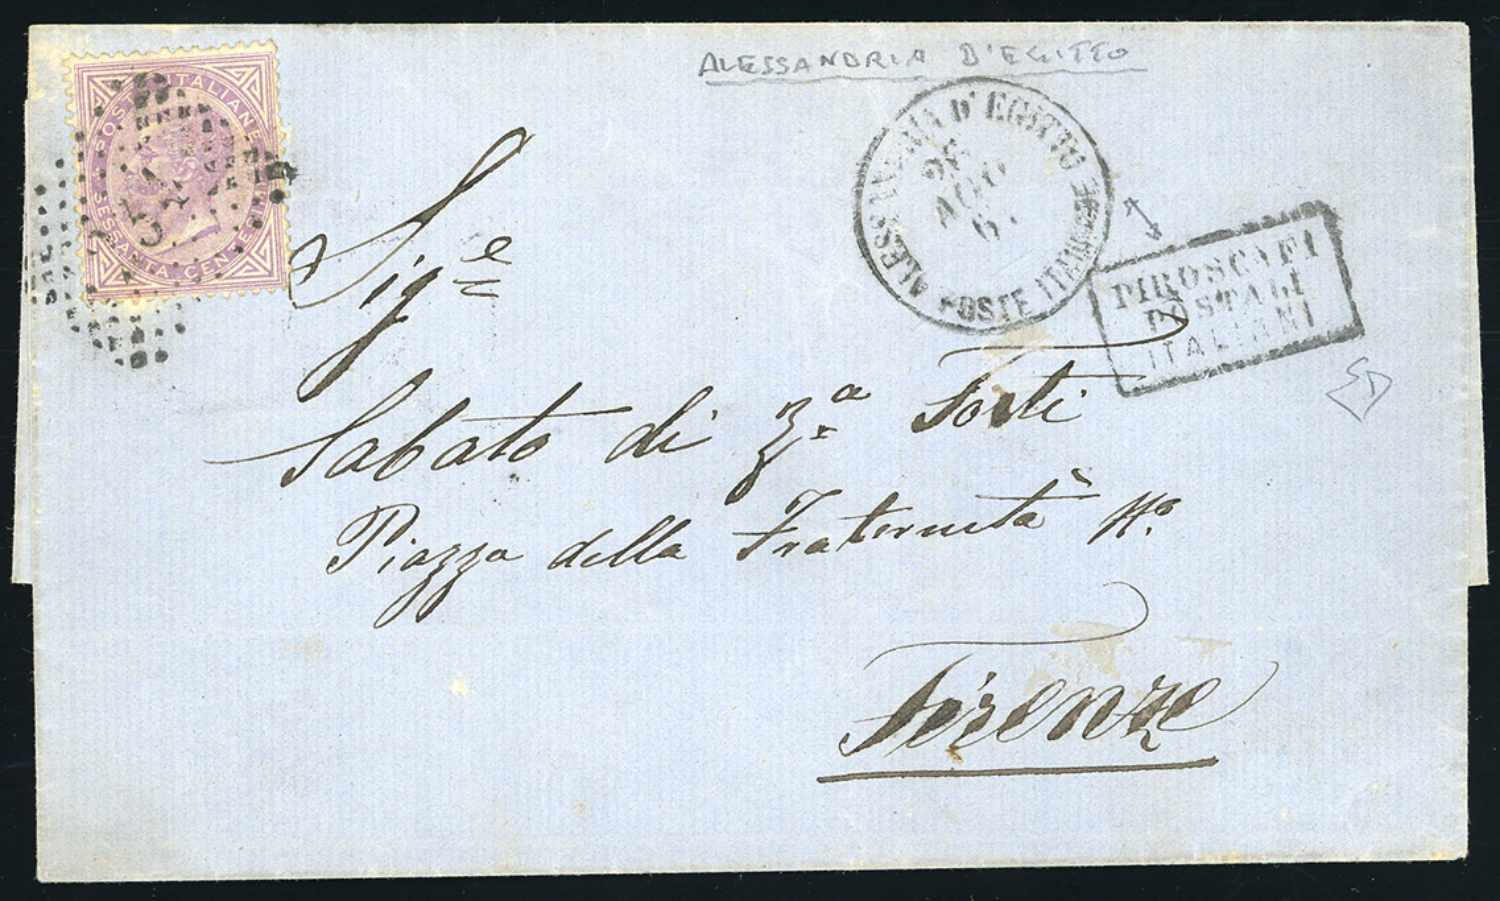 ALESSANDRIA D'EGITTO
POSTE ITALIANE
SESSANTA CENTESIMI
234
ALESSANDRIA D'EGITTO
AGO
POSTE ITALIANE
PIROSCAFI
POSTALI
ITALIANI
Sig.e
Sabato di Za Forti
Piazza della Fraternità No
Firenze